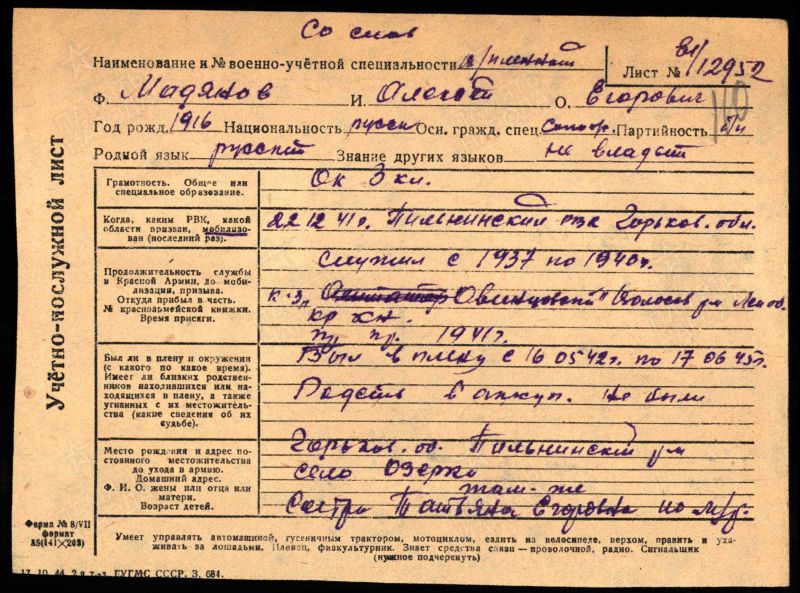 Со слов
Наименование и № военно-учётной специальности
Лист № 12952
Ф. Мадянов И. Алексей О. Егорович
Год рожд. 1916 Национальность русск Осн. гражд. спец. Партийность б/п
Родной язык русский Знание других языков не владеет
Учётно-послужной лист
Грамотность. Общее или
специальное образование.
Ок 3 кл.
Когда, каким РВК, какой
области призван, мобилизо-
ван (последний раз).
22 12 41 г. Пильнинский рвк Горьков. обл.
Продолжительность службы
в Красной Армии, до моби-
лизации, призыва.
Откуда прибыл в часть.
№ красноармейской книжки.
Время присяги.
служил с 1937 по 1940 г.
кр кн.
пр. пр. 1941 г.
Был ли в плену и окружении
(с какого по какое время).
Имеет ли близких родствен-
ников находившихся или на-
ходящихся в плену, а также
угнанных с их местожитель-
ства (какие сведения об их
судьбе).
Был в плену с 16 05 42 г. по 17 06 45 г.
Родств в оккуп. не были
Место рождения и адрес по-
стоянного местожительства
до ухода в армию.
Домашний адрес.
Ф. И. О. жены или отца или
матери.
Возраст детей.
Горьков. об. Пильнинский р-н
село Озерки
там-же
Сестра Татьяна Егоровна по м/р.
Форма № 8/VII
формат
А5(141×203)
Умеет управлять автомашиной, гусеничным трактором, мотоциклом, ездить на велосипеде, верхом, править и уха-
живать за лошадьми. Пловец, физкультурник. Знает средства связи — проволочной, радио. Сигнальщик
(нужное подчеркнуть)
17.10.44 СССР. З. 684.